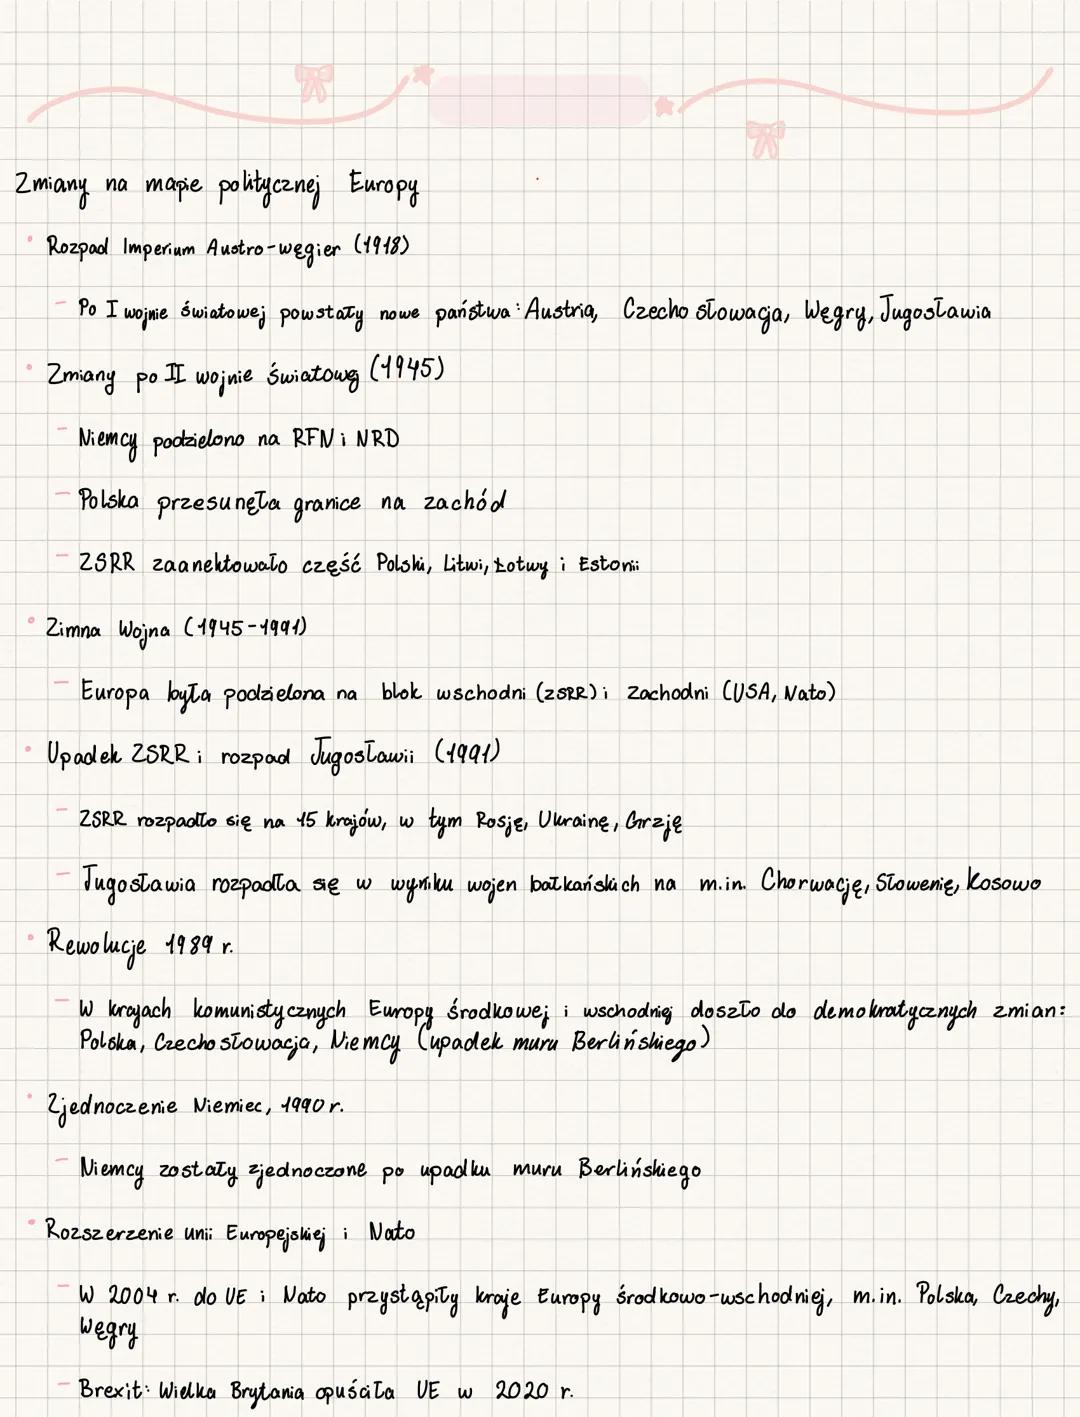 Zmiany na mapie politycznej Europy
• Rozpad Imperium Austro-węgier (1918)
– Po I wojnie światowej powstały nowe państwa: Austria, Czechosłowacja, Węgry, Jugosławia
• Zmiany po II wojnie światową (1945)
– Niemcy podzielono na RFN i NRD
– Polska przesunęła granice na zachód
– ZSRR zaanektowało część Polski, Litwi, Łotwy i Estonii
• Zimna Wojna (1945-1991)
– Europa była podzielona na blok wschodni (ZSRR) i zachodni (USA, Nato)
• Upadek ZSRR i rozpad Jugosławii (1991)
– ZSRR rozpadło się na 15 krajów, w tym Rosję, Ukrainę, Grzję
– Jugosławia rozpadła się w wyniku wojen bałkańskich na m.in. Chorwację, Słowenię, Kosowo
• Rewolucje 1989 r.
– W krajach komunistycznych Europy środkowej i wschodniej doszło do demokratycznych zmian:
Polska, Czechosłowacja, Niemcy (upadek muru Berlińskiego)
• Zjednoczenie Niemiec, 1990 r.
– Niemcy zostały zjednoczone po upadku muru Berlińskiego
• Rozszerzenie unii Europejskiej i Nato
– W 2004 r. do UE i Nato przystąpiły kraje Europy środkowo-wschodniej, m.in. Polska, Czechy,
Węgry
– Brexit: Wielka Brytania opuściła UE w 2020 r.